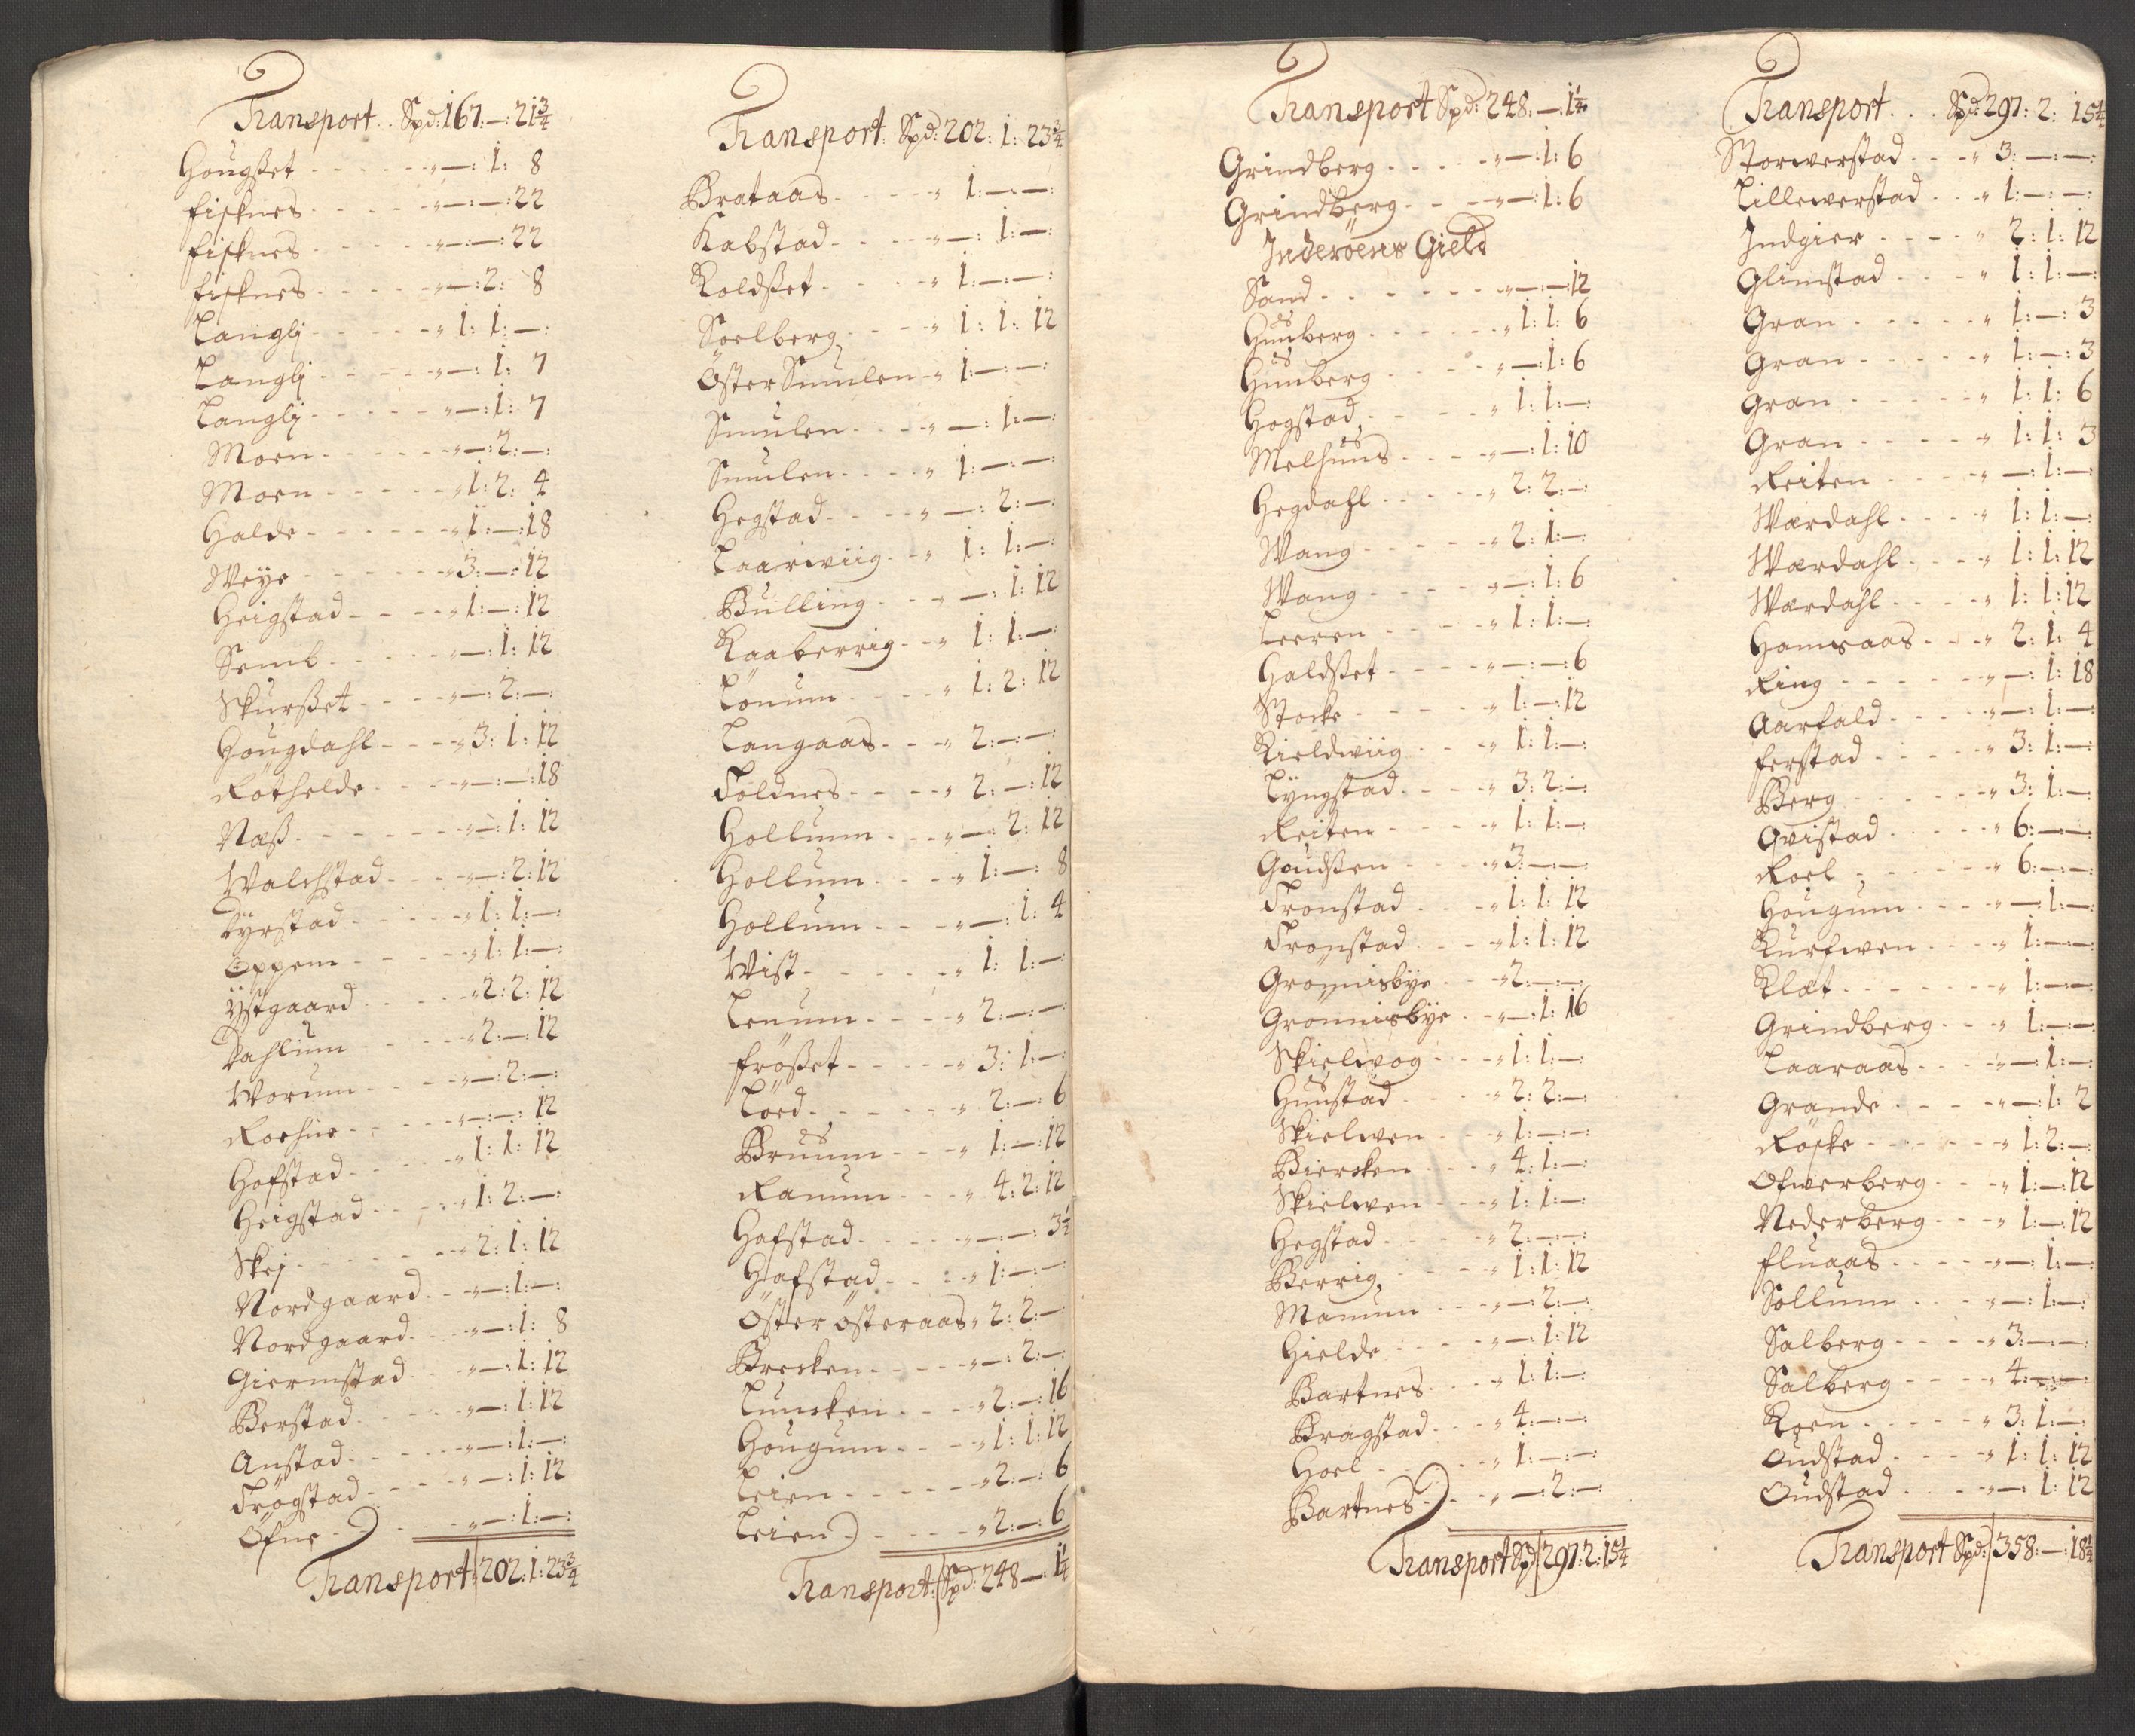 Transport. Spd: 167:—:21¾
Hougßet - - - „—: 1: 8
fisknes - - - „—:—:22
fisknes - - - „—:—:22
fisknes - - - „—:2: 8
Langlj - - - „1: 1:—:
Langlj - - - „—: 1: 7
Langlj - - - „—: 1: 7
Moen - - - „—:2:—:
Moen - - - „1: 2: 4
Halde - - - „1:—:18
Weye - - - „3:—:12
Heigstad - - - „1:—:12
Semb - - - „—: 1: 12
Skurßet - - - „—:2:—:
Hougdahl - - - „3: 1: 12
Röthelde - - - „—:—:18
Næß - - - „—: 1: 12
Walchstad - - - „—:2:12
Dyrstad - - - „1: 1:—:
Oppem - - - „1: 1:—:
Ystgaard - - - „2: 2: 12
Dahlum - - - „2:—:12
Worum - - - „—:2:—:
Roehne - - - „—:—: 12
Hofstad - - - „1: 1: 12
Heigstad - - - „1: 2:—:
Skej - - - „2: 1: 12
Nordgaard - - „—:1:—:
Nordgaard - - „—: 1: 8
Giermstad - - „—: 1: 12
Berstad - - - „—: 1: 12
Anstad - - - „—: 1:—:
Trögstad - - - „—: 1: 12
Öfne - - - „—: 1:—:
Transport: 202: 1: 23¾
Transport: Spd: 202: 1: 23¾
Brataas - - - „ 1:—:—:
Kabstad - - - „—: 1:—:
Koldßet - - - „ 1:—:—:
Soelberg - - - „ 1: 1: 12
Öster Smulen - „ 1:—:—:
Smulen - - - „—: 1:—:
Smulen - - - „ 1:—:—:
Hegstad - - - „—: 2:—:
Laarwiig - - „ 1: 1:—:
Bulling - - - „—: 1: 12
Kaaberrig - - „ 1: 1:—:
Lönum - - - „ 1: 2: 12
Langaas - - - „ 2:—:—:
Foldnes - - - „ 2:—:12
Hollum - - - „—: 2: 12
Hollum - - - „ 1:—: 8
Hollum - - - „—: 1: 4
Wist - - - „ 1: 1:—:
Lenum - - - „ 2:—:—:
frößet - - - „ 3: 1:—:
Löed - - - „ 2:—: 6
Bruum - - - „ 1:—:12
Ranum - - - „ 4: 2: 12
Hafstad - - - „—:—: 3½
Hafstad - - - „ 1:—:—:
Öster Österaas „ 2: 2:—:
Brecken - - - „—: 2:—:
Luncken - - - „2:—:16
Hougum - - - „1: 1: 12
Leien - - - „2:—: 6
Leien - - - „2:—: 6
Transport: Spd: 248—:1¼
Transport Spd: 248:—:1¼
Grindberg - - - „—:1: 6
Grindberg - - - „—:1: 6
Inderöens Gield
Sand - - - „—:—:12
Husberg - - - „1: 1: 6
Husberg - - - „—:1: 6
Hogstad - - - „1: 1:—:
Melhuus - - - „—:1: 10
Hegdahl - - - „2: 2:—:
Wang - - - „2: 1:—:
Wang - - - „—: 1: 6
Leeren - - - „1: 1:—:
Haldßet - - - „—:—:6
Stocke - - - „1:—:12
Kieldwiig - - „1: 1:—:
Lyngstad - - - „3: 2:—:
Reiten - - - „1: 1:—:
Goudsten - - - „3:—:—:
Tronstad - - - „1: 1: 12
Tronstad - - - „1: 1: 12
Gronnisbye - - „2:—:—:
Gronnisbye - - „—:1: 16
Skielwog - - - „1: 1:—:
Huustad - - - „2: 2:—:
Skielwen - - - „1:—:—:
Biercken - - - „4: 1:—:
Skielwen - - - „1: 1:—:
Hegstad - - - „2:—:—:
Berrig - - - „1: 1: 12
Mamum - - - „—:2:—:
Hielde - - - „—: 1: 12
Bartnes - - - „1: 1:—:
Bragstad - - - „4:—:—:
Hoel - - - „1:—:—:
Bartnes - - - „—:2:—:
Transport Spd 297: 2: 15¼
Transport. . . Spd: 297: 2: 15¼
Storwerstad - - „ 3:—:—:
Lillewerstad - - „ 1:—:—:
Indgier - - - „ 2: 1: 12
Glimstad - - - „ 1: 1:—:
Gran - - - „ 1:—: 3
Gran - - - „ 1:—: 3
Gran - - - „ 1: 1: 6
Gran - - - „ 1: 1: 3
Reiten - - - „—: 1:—:
Wærdahl - - - „ 1: 1:—:
Wærdahl - - - „ 1: 1: 12
Wærdahl - - - „ 1: 1: 12
Hamraas - - - „ 2: 1: 4
Ring - - - „—: 1: 18
Aarfald - - - „—: 1:—:
ferstad - - - „ 3: 1:—:
Berg - - - „ 3: 1:—:
Qvistad - - - „ 6:—:—:
Roel - - - „ 6:—:—:
Hougum - - - „—: 1:—:
Kurfwen - - - „ 1:—:—:
Klæt - - - „ 1:—:—:
Grindberg - - „ 1:—:—:
Laaraas - - - „—: 1:—:
Grande - - - „—: 1: 2
Röske - - - „ 1: 2:—:
Ofwerberg - - „ 1:—:12
Nederberg - - „ 1:—:12
fluaas - - - „—: 1:—:
Sollum - - - „—: 1:—:
Salberg - - - „ 3:—:—:
Salberg - - - „ 4:—:—:
Koen - - - „ 3: 1:—:
Oudstad - - - „ 1: 1: 12
Oudstad - - - „—: 1: 12
Transport Spd: 358:—:18¼